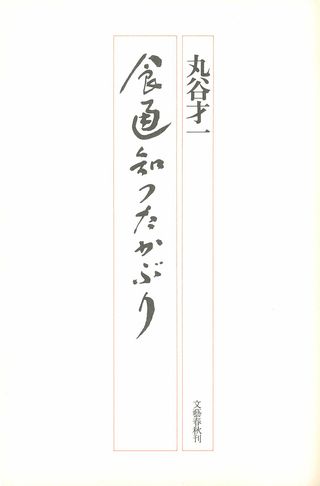 丸谷才一
食通知つたかぶり
文藝春秋刊